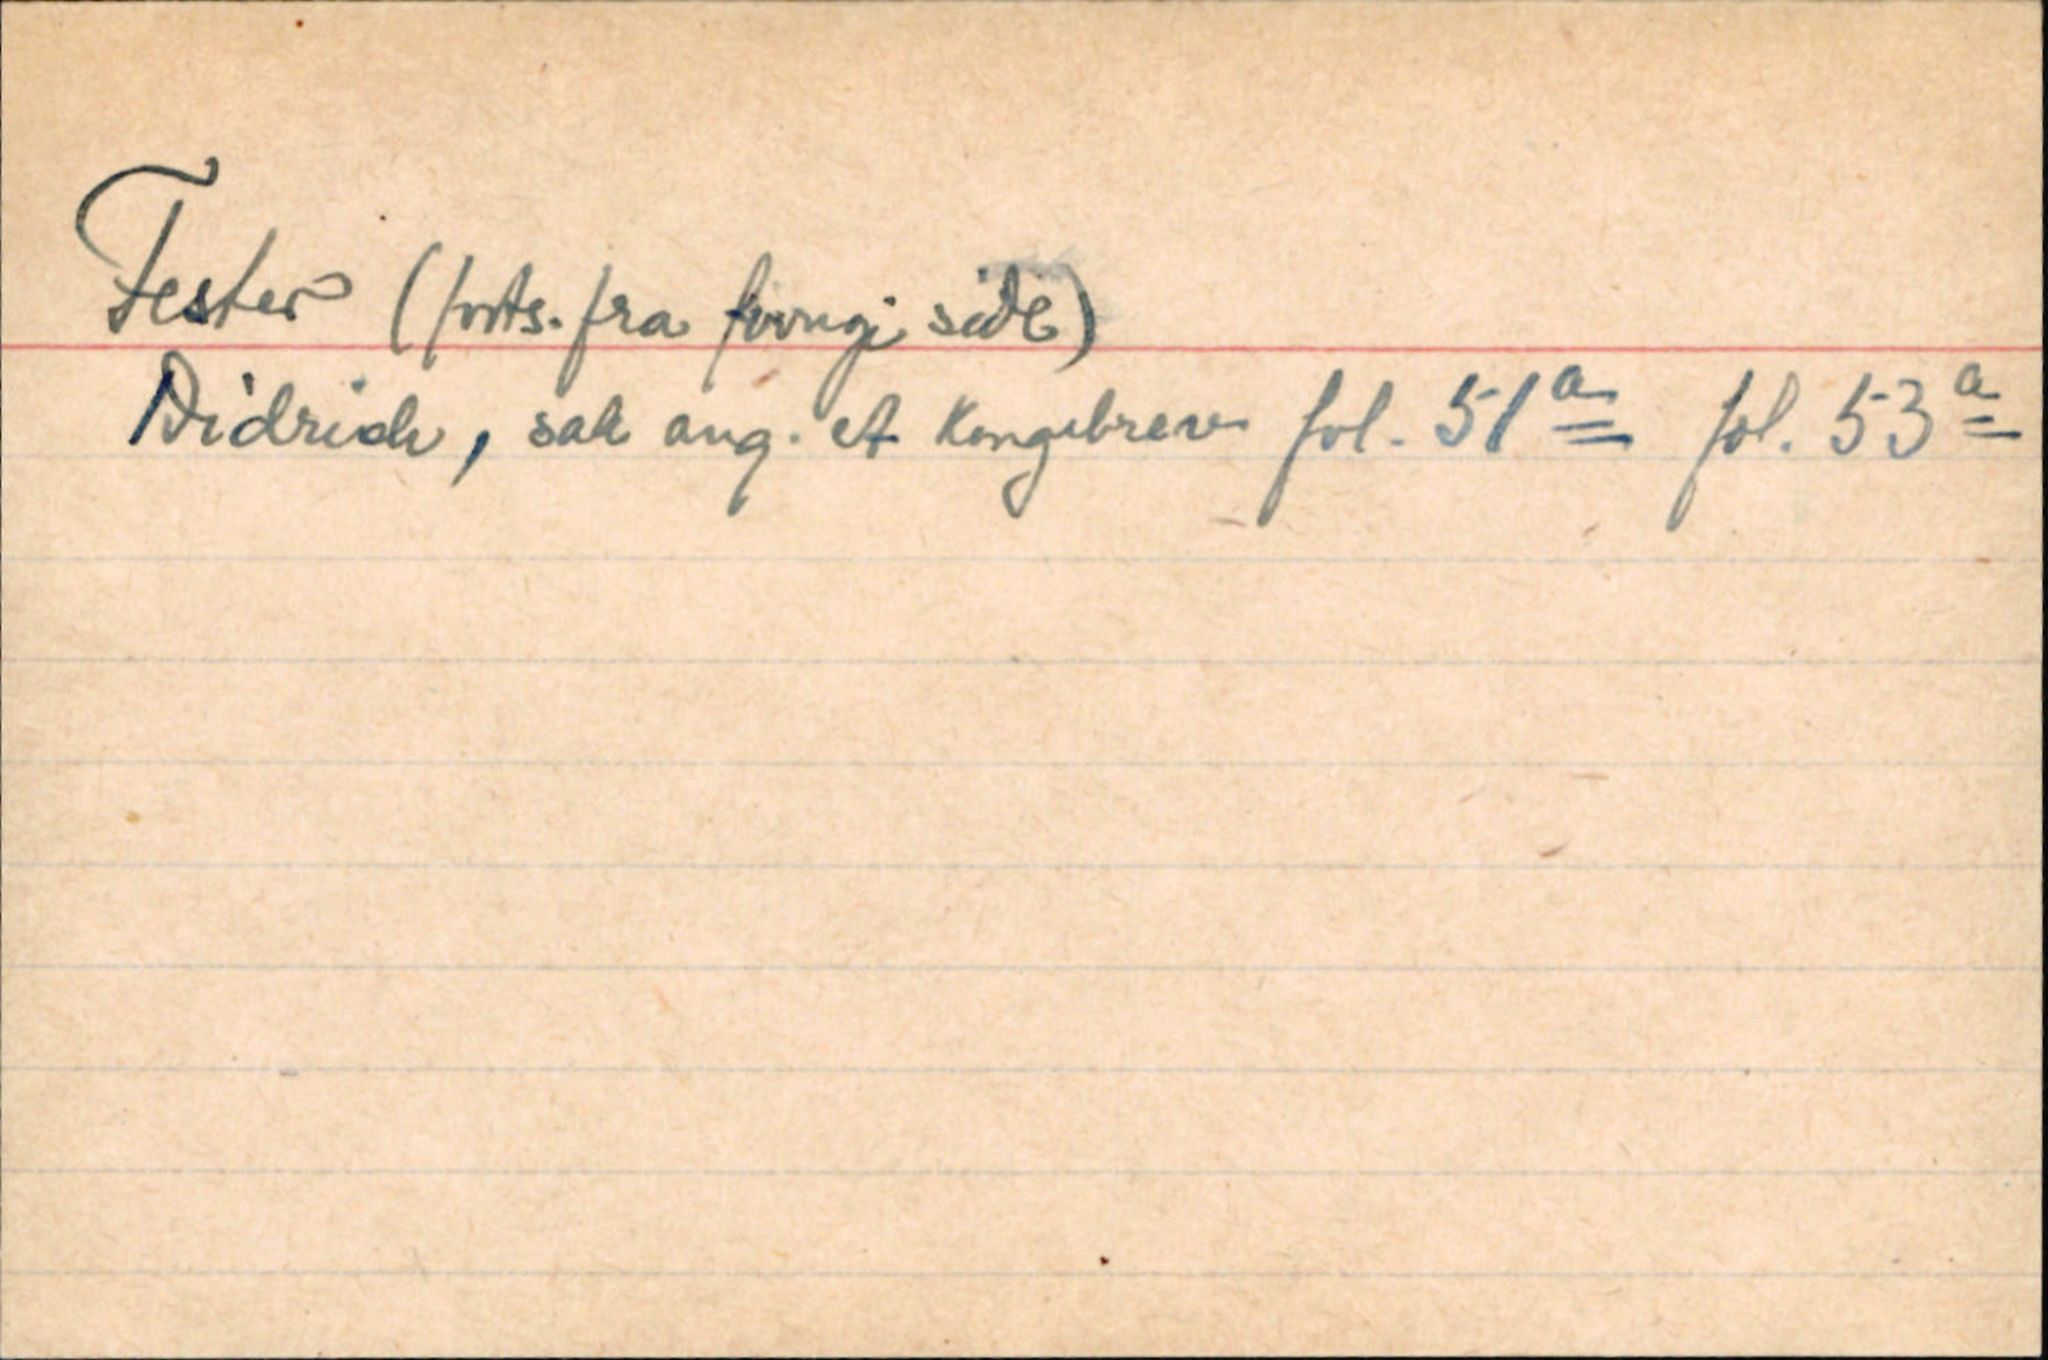 Fester (forts. fra forrige side)
Didrich, sak ang. et Kongebrev fol. 51a fol. 53a